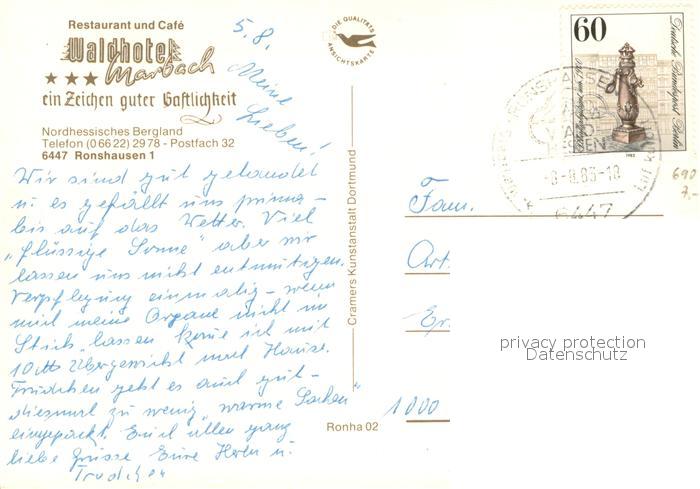 Restaurant und Café
Waldhotel
Marbach
ein Zeichen guter Gastlichkeit
Nordhessisches Bergland
Telefon (0 66 22) 29 78 - Postfach 32
6447 Ronshausen 1
5.8.
Meine
Lieben!
Wir sind gut gelandet
u. es gefällt uns prima -
bis auf das Wetter. Viel
"flüssige Sonne" aber wir
lassen uns nicht entmutigen.
Verpflegung einmalig - wenn
mich meine Organe nicht im
Stich lassen komme ich mit
10 Übergewicht nach Hause.
Trudchen geht es auch gut -
diesmal zu wenig "warme Sachen"
eingepackt. Euch allen ganz
liebe Grüsse Eure u.
Trudchen
DIE QUALITÄTS
ANSICHTSKARTE
Cramers Kunstanstalt Dortmund
Ronha 02
60
Deutsche Bundespost Berlin
1983
RONSHAUSEN
-8.-8.83-18
6447
690
7,-
Fam.
1000
privacy protection
Datenschutz